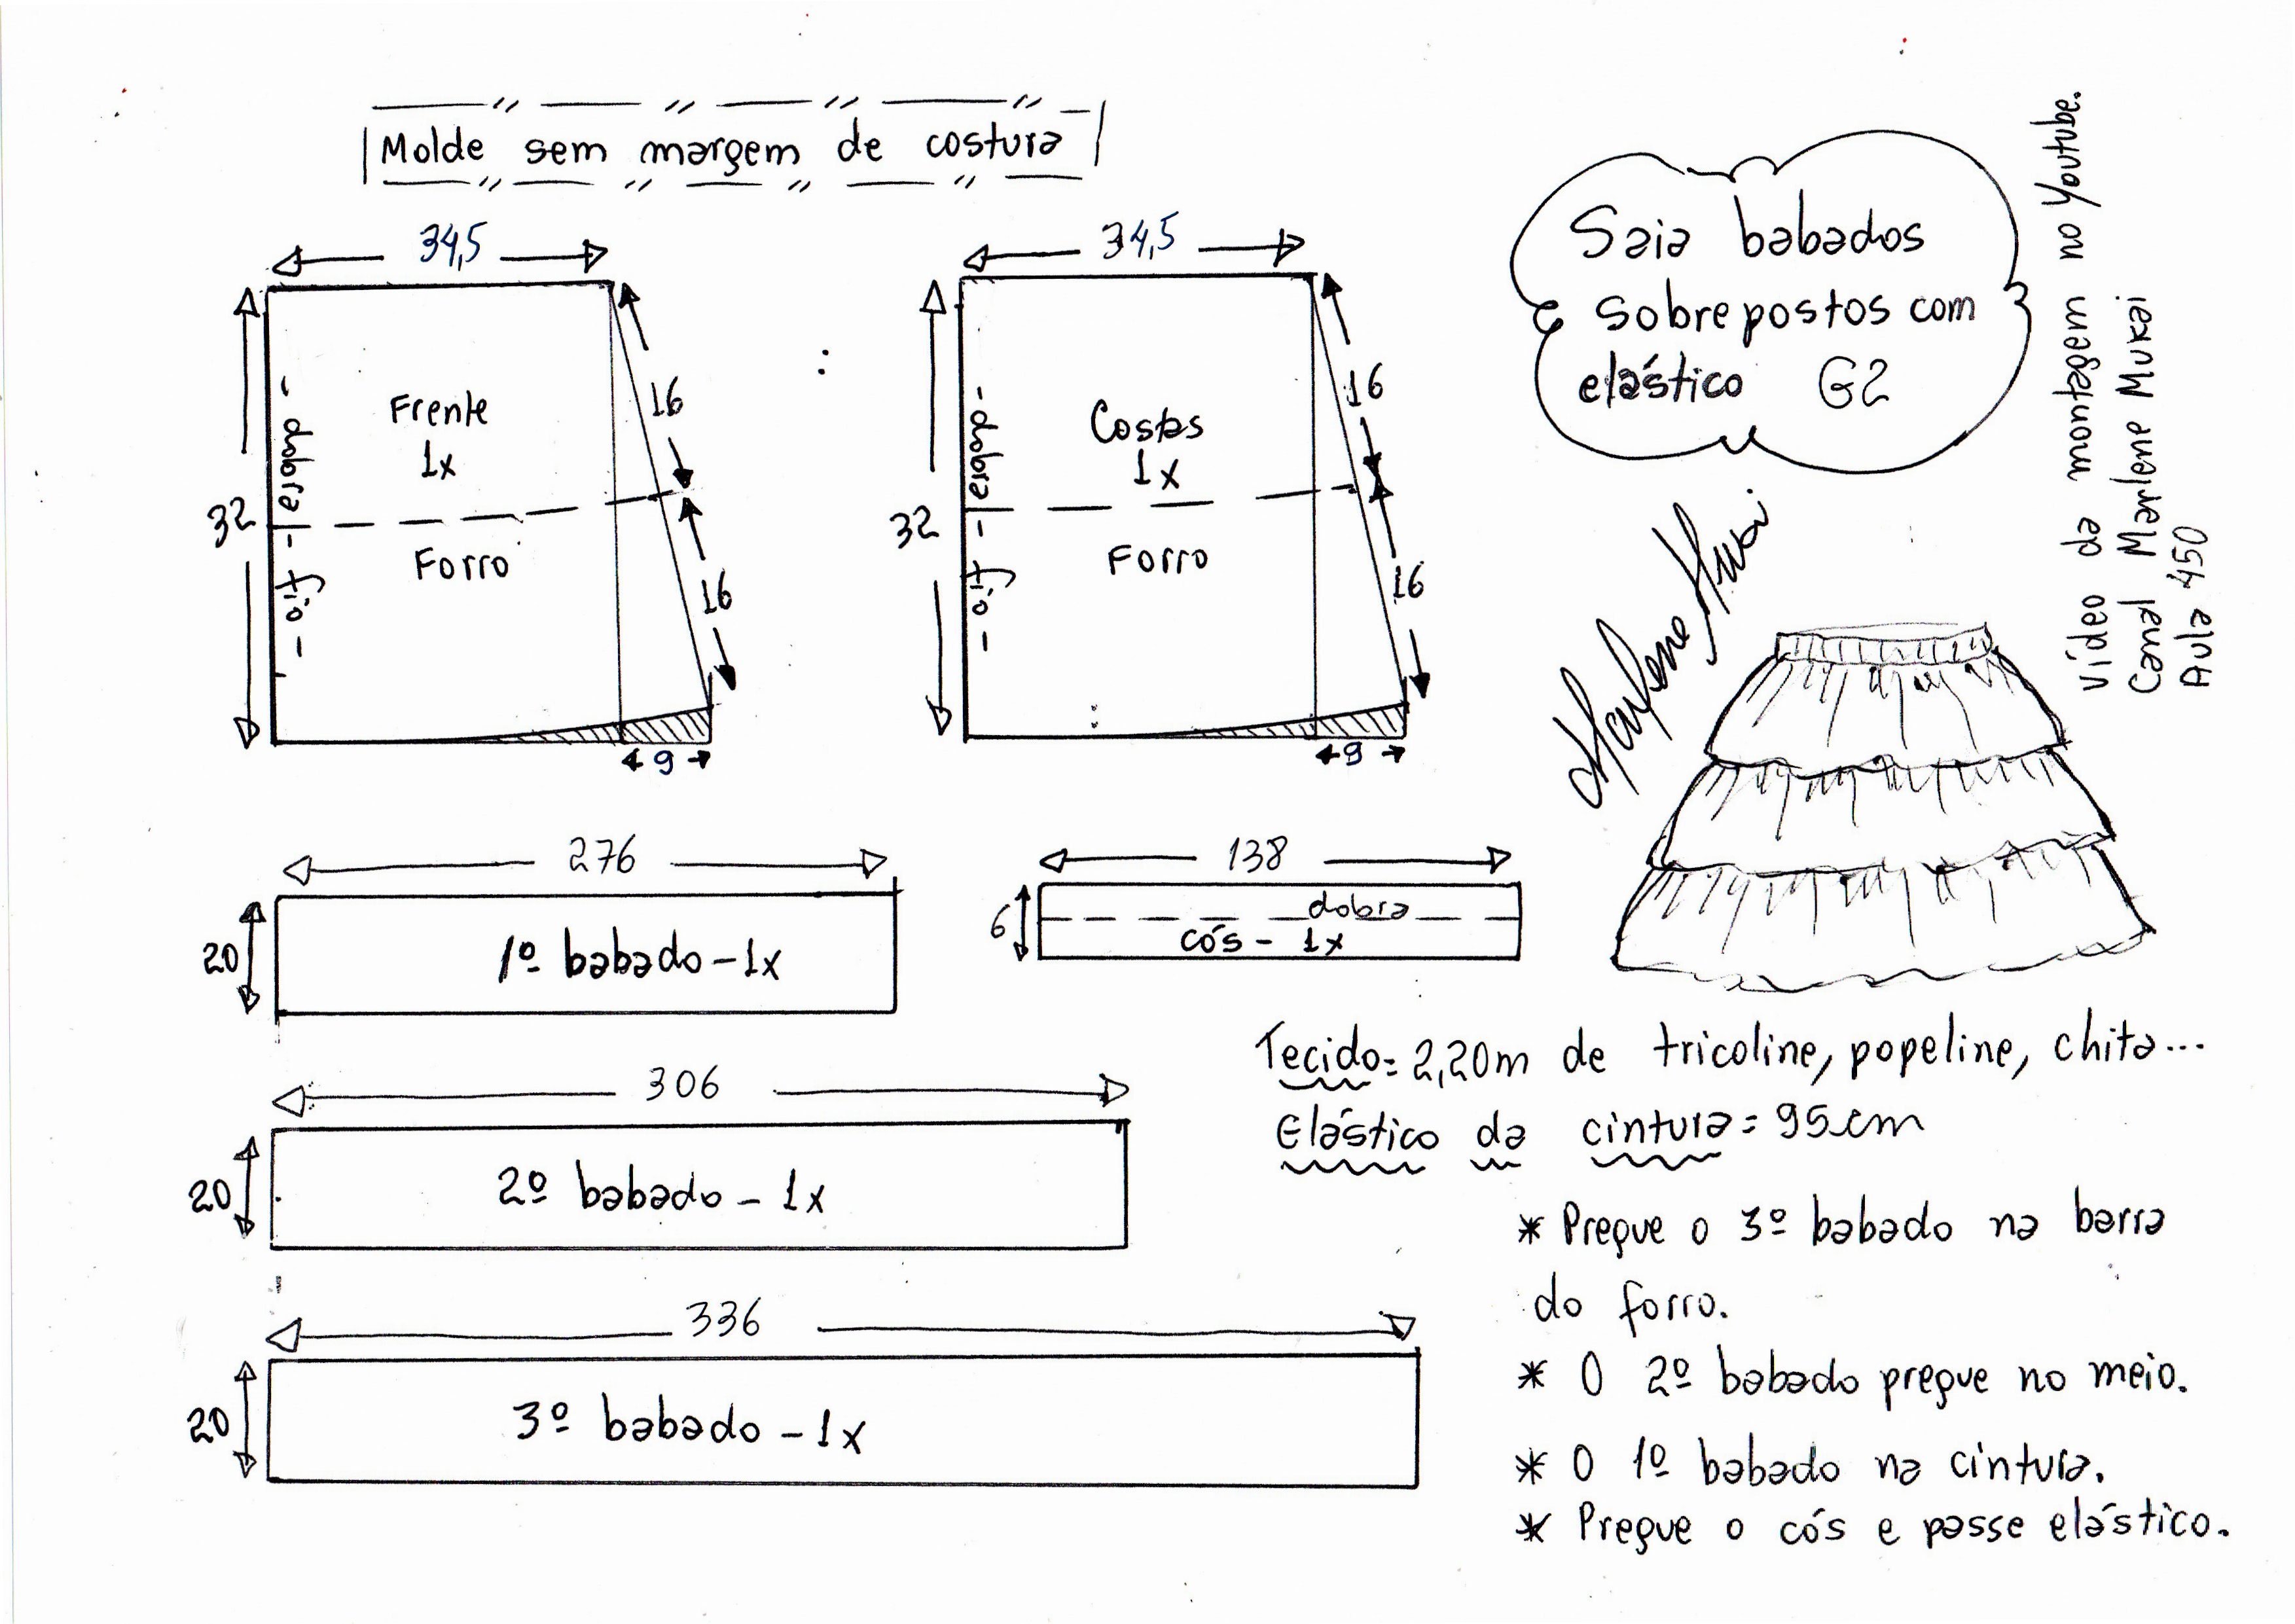 Molde sem margem de costura
34,5
32
dobra - fio
Frente
1x
Forro
16
16
9
34,5
32
dobra - fio
Costas
1x
Forro
16
16
9
Saia babados
sobrepostos com
elástico G2
Vídeo da montagem no Youtube.
Canal Marlene Mukai
Aula 450
Marlene Mukai
276
20
1º babado - 1x
138
6
dobra
cós - 1x
306
20
2º babado - 1x
336
20
3º babado - 1x
Tecido = 2,20m de tricoline, popeline, chita...
Elástico da cintura = 95cm
* Pregue o 3º babado na barra
do forro.
* O 2º babado pregue no meio.
* O 1º babado na cintura.
* Pregue o cós e passe elástico.